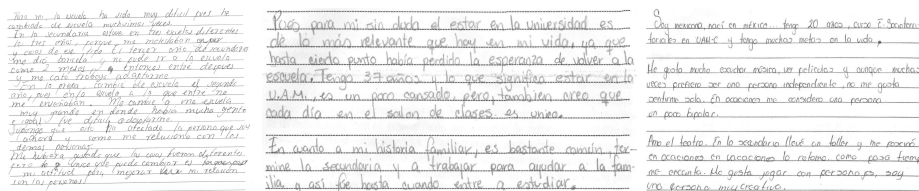 Para mi la escuela ha sido muy difícil pues he
cambiado de escuela muchisimas veces.
En la secundaria estuve en tres escuelas diferentes
lo tres años, porque me molestaban
y cosas de ese tipo. El tercer año de secundaria
me dio y no pude ir a la escuela
como 2 meses, y entonces entre después
y me costo trabajo adaptarme.
En la prepa cambie de escuela el segundo
año, por que
me Me cambie a una escuela
muy grande en donde había mucha gente
e igual fue difícil adaptarme.
Supongo que esto ha afectado la persona que soy
ahora y como me relaciono con las
demás personas.
Me hubiera gustado que las cosas fueran diferentes
pero lo único que puedo cambiar es
mi actitud para mejorar mi relación
con las personas.
Pues para mi sin duda el estar en la universidad es
de lo más relevante que hay en mi vida, ya que
hasta cierto punto había perdido la esperanza de volver a la
escuela. Tengo 37 años y lo que significa estar en la
U.A.M. es un poco cansado, pero, tambien creo que
cada día en el salon de clases es unico.
En cuanto a mi historia familiar, es bastante comun, ter-
mine la secundaria y a trabajar para ayudar a la fam-
ilia, y asi fue hasta cuando entre a estudiar.
Soy mexicana, nací en méxico... tengo 20 años, curso
en UAM-C y tengo muchas metas en la vida.
Me gusta mucho escuchar música, ver películas y aunque muchas
veces prefiero ser una persona independiente, no me gusta
sentirme sola. En ocaciones me considero una persona
un poco bipolar.
Amo el teatro. En la secundaria llevé un taller y me
en ocaciones en vacaciones lo retomo como pasa tiempo
me encanta. Me gusta jugar con personajes, soy
una persona muy creativa.